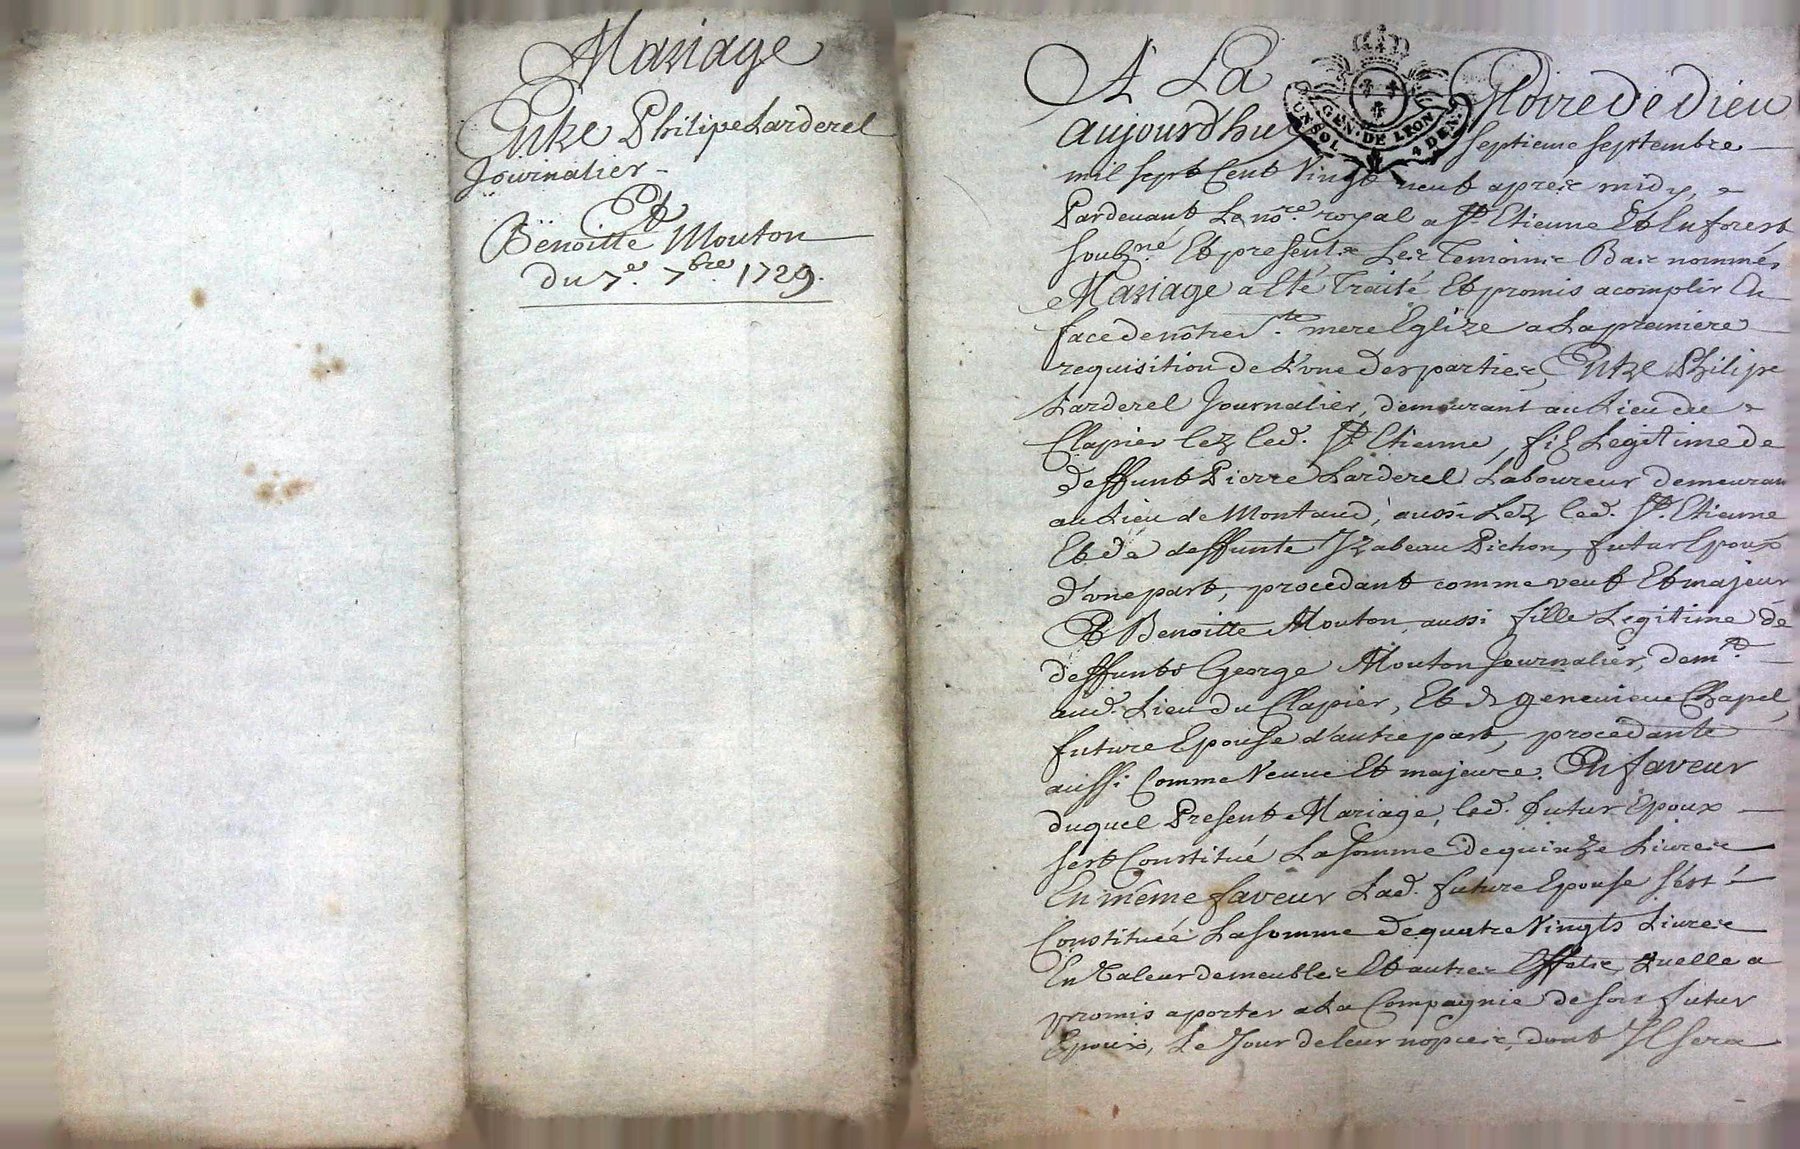 Mariage
Entre Philipe Larderel
Journalier
Et
Benoitte Mouton
du 7.e 7.bre 1729.
A La Gloire de Dieu
GEN. DE LION
UN SOL. 4 DEN.
aujourdhuy septieme septembre
mil sept Cent Vingt neuf apres midy,
Pardevant Le no.re royal a St Etienne Et En forest
soubz.né Et presents Les Temoins Bas nommés
Mariage a Eté Traité Et promis acomplir En
face de nôtre s.te mere Eglize a La premiere
requisition de L'vne des parties, Entre Philipe
Larderel Journalier, demeurant au Lieu du
Clapier lez led. St. Etienne, fils Legitime de
deffunt Pierre Larderel Laboureur demeurant
au Lieu de Montaud, aussi Lez led. St. Etienne
Et de deffunte Yzabeau Pichon, futur Epoux
d'vne part, procedant comme veuf Et majeur
Et Benoitte Mouton, aussi fille Legitime de
deffunts George Mouton Journalier, dem.t
aud. Lieu du Clapier, Et de genevieve Chapel,
future Epouse d'autre part, procedante
aussi Comme Veuve Et majeure. En faveur
duquel Present Mariage, led. futur Epoux
sest Constitué La somme de quinze Livres
En même faveur Lad. future Epouse s'est
Constituée La somme de quatre Vingts Livres
En Valeur de meubles Et autres Effets, quelle a
promis aporter a La Compagnie de son futur
Epoux, Le Jour de leur nopces, dont Il sera